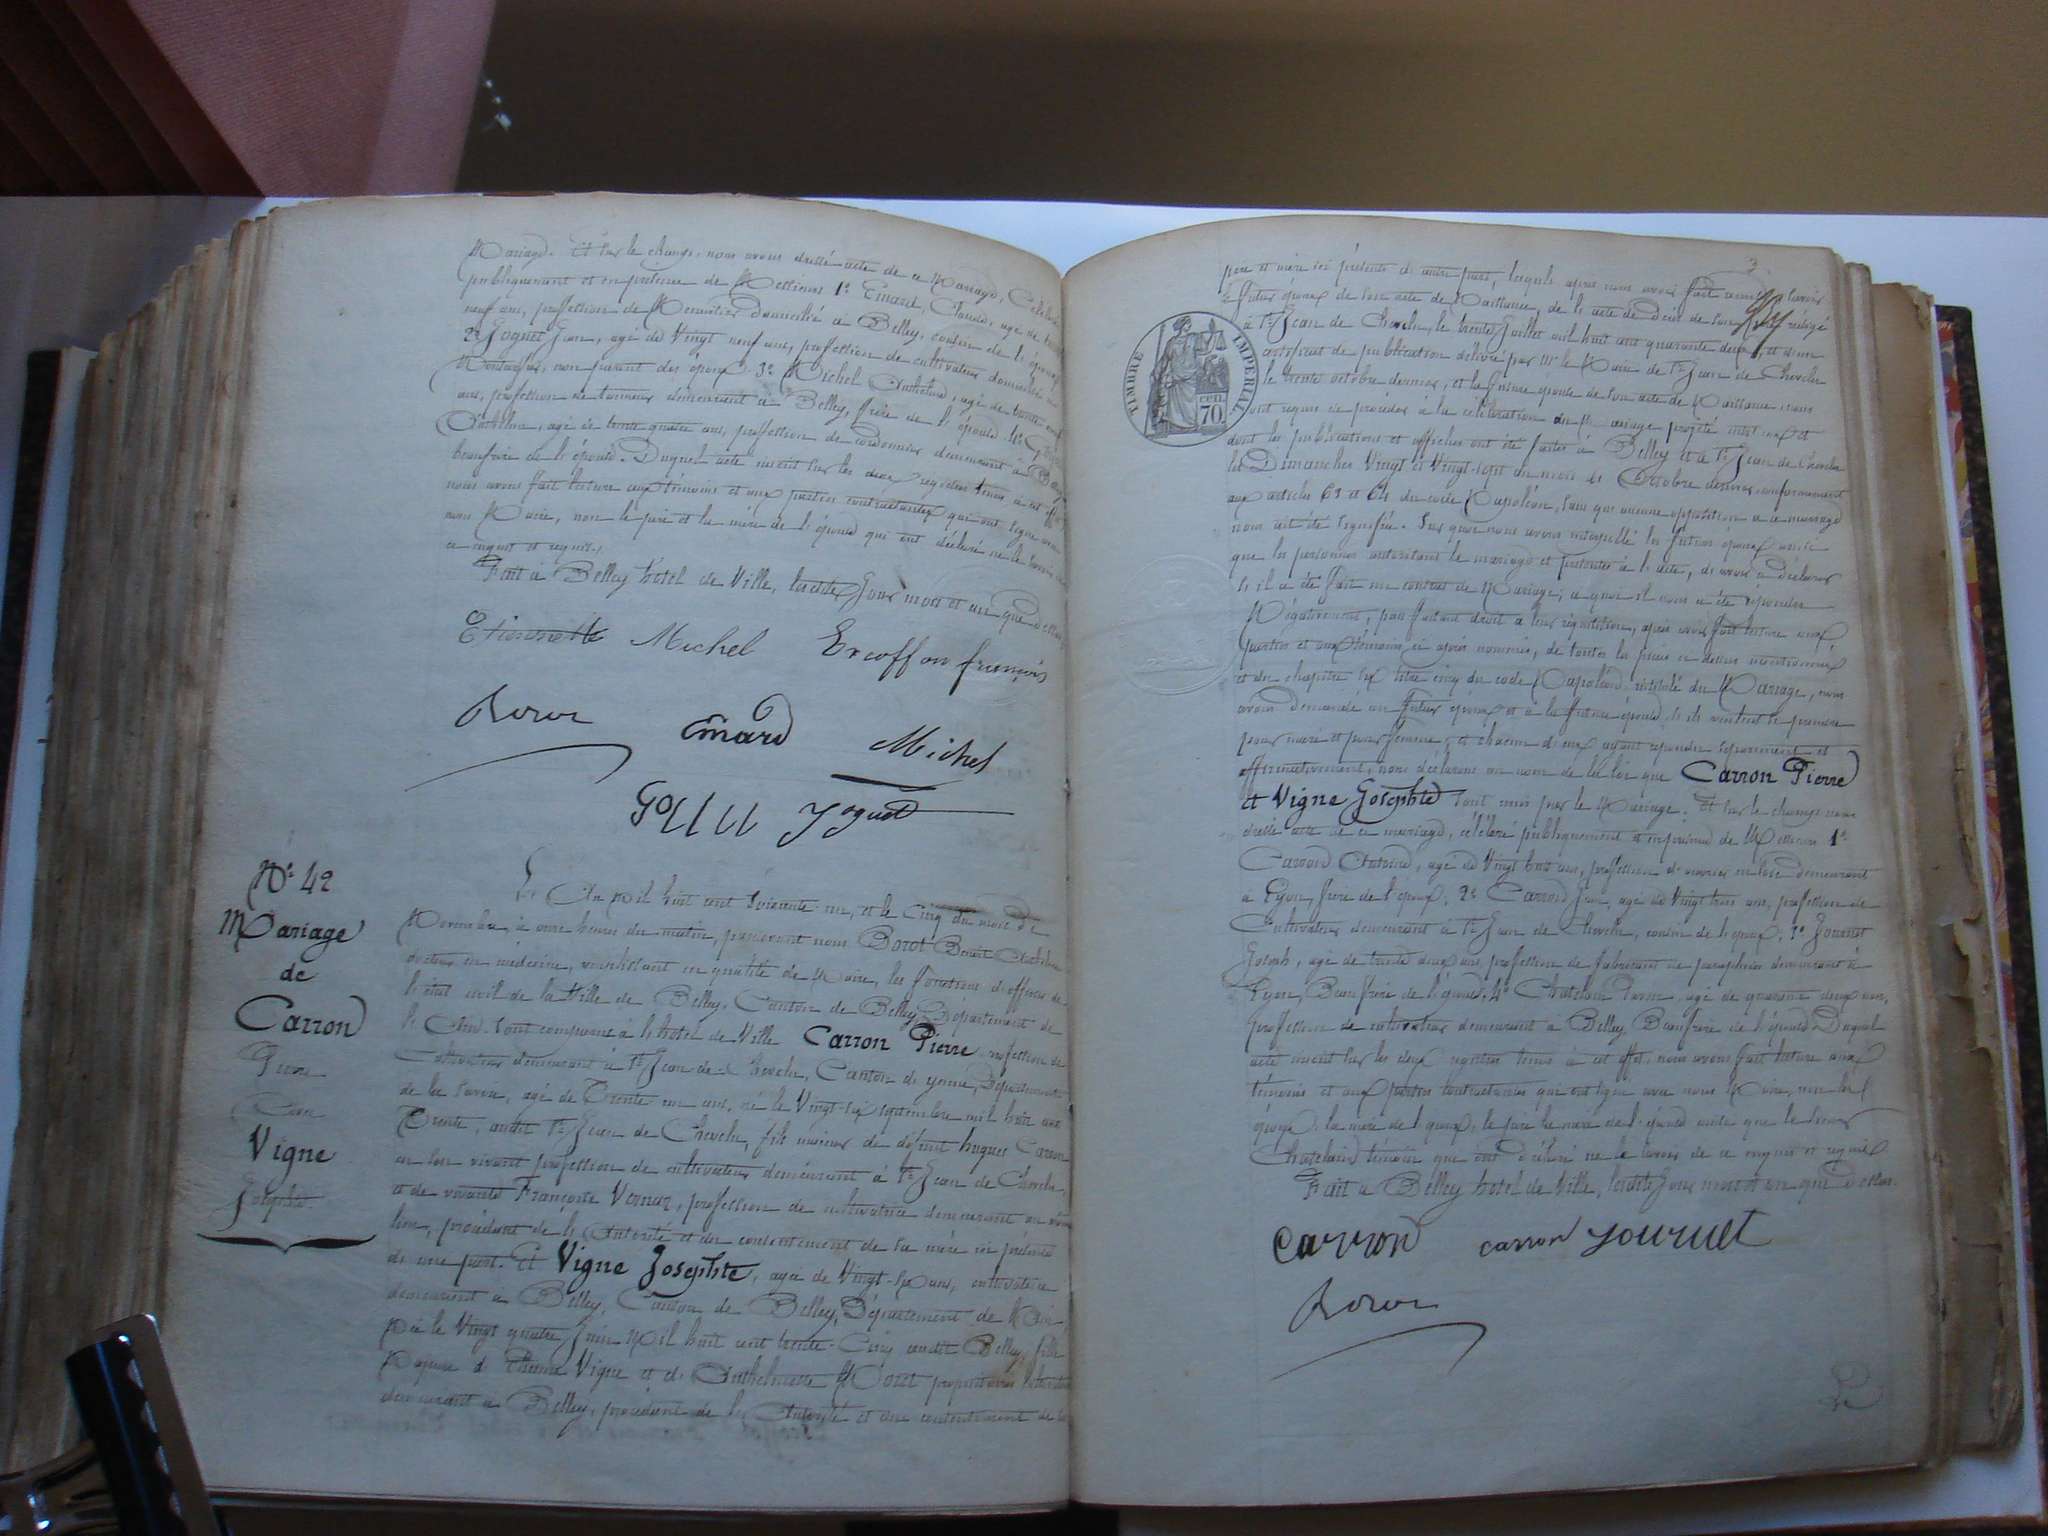 Mariage. Et sur le champ, nous avons dressé acte de ce Mariage, Célébré
publiquement et en présence de Messieurs 1° Emard, Claude, agé de trente
neuf ans, profession de Menuisier domicilié à Belley, cousin de l'épouse
2° Joguet Jean, agé de Vingt neuf ans, profession de cultivateur domicilié à
non parent des époux. 3° Michel Anthelme, agé de trente
ans, profession de tanneur demeurant à Belley, frère de l'épouse. 4°
Anthelme, agé de trente quatre ans, profession de cordonnier demeurant à Belley
beaufrère de l'épouse. Duquel acte inscrit sur les deux registres tenus à cet effet
nous avons fait lecture aux témoins et aux parties contractantes qui ont signé avec
nous Maire, non le père et la mère de l'épouse qui ont déclaré ne le savoir
de ce enquis et requis.
Fait à Belley hôtel de Ville, lesdits Jour mois et an que dessus
Etiennette Michel Excoffon françois
Emard Michel
Joguet
N° 42
Mariage
de
Carron
Pierre
Avec
Vigne
Josephte
L'An Mil huit cent soixante-un, et le Cinq du mois de
Novembre, à onze heures du matin, pardevant nous Benoit Anthelme
docteur en médecine, remplissant en qualité de Maire, les fonctions d'officier de
l'état civil de la Ville de Belley, Canton de Belley, Département de
l'Ain. sont comparus à l'hôtel de Ville Carron Pierre profession de
Cultivateur demeurant à St Jean de Chevelu, Canton d'yenne, Département
de la Savoie, agé de Trente-un ans, né le Vingt-six septembre mil huit cent
Trente, audit St Jean de Chevelu, fils majeur de défunt hugues Carron
en son vivant profession de cultivateur demeurant à St Jean de Chevelu,
et de vivante Françoise profession de cultivatrice demeurant au même
lieu, procédant de l'Autorité et du consentement de sa mère ici présente
d'une part. Et Vigne Josephte, agée de Vingt-six ans, cultivatrice
demeurant à Belley, Canton de Belley, Département de l'Ain,
Née le Vingt quatre Juin Mil huit cent trente-Cinq audit Belley, fille
Majeure d'Etienne Vigne et d'Anthelmette propriétaires cultivateurs
demeurant à Belley, procédant de l'Autorité et du consentement de ses
père et mère ici présents d'autre part, lesquels après nous avoir fait remise, savoir
le futur époux de son acte de Naissance, de l'acte de décès de son Père rédigé
à St Jean de Chevelu, le trente Juillet mil huit cent quarante deux, et d'un
certificat de publication délivré par Mr le Maire de St Jean de Chevelu
le trente octobre dernier, et la future épouse de son acte de Naissance, nous
ont requis de procéder à la célébration du Mariage projeté entre eux et
dont les publications et affiches ont été faites à Belley et à St Jean de Chevelu
les Dimanches Vingt et Vingt-sept du mois d'Octobre dernier, conformément
aux articles 63 et 64 du code Napoléon, sans que aucune opposition à ce mariage
nous ait été signifiée. Sur quoi nous avons interpellé les futurs époux ainsi
que les personnes autorisant le mariage et présentes à l'acte, d'avoir à déclarer
s'il a été fait un contrat de Mariage; à quoi il nous a été répondu
Négativement, puis faisant droit à leur réquisition, après avoir fait lecture aux
parties et aux témoins ci après nommés, de toutes les pièces ci dessus mentionnées
et du chapitre six titre cinq du code Napoléon intitulé du Mariage, nous
avons demandé au futur époux et à la future épouse s'ils veulent se prendre
pour mari et pour femme, et chacun d'eux ayant répondu séparément et
affirmativement, nous déclarons au nom de la loi que Carron Pierre
et Vigne Josephte sont unis par le Mariage. Et sur le champ, nous
dressé acte de ce mariage, célébré publiquement et en présence de Messieurs 1°
Carron Antoine, agé de Vingt huit ans, profession d'ouvrier en soie demeurant
à Lyon, frère de l'époux; 2° Carron Jean, agé de Vingt trois ans, profession de
Cultivateur demeurant à St Jean de Chevelu, cousin de l'époux; 3° Journet
Joseph, agé de trente deux ans, profession de fabricant de parapluies demeurant à
Lyon, Beaufrère de l'épouse. 4° Chatelain agé de quarante deux ans,
profession de cultivateur demeurant à Belley Beaufrère de l'épouse. Duquel
acte inscrit sur les deux registres tenus à cet effet, nous avons fait lecture aux
témoins et aux parties contractantes qui ont signé avec nous Maire, non les
époux, la mère de l'époux, le père la mère de l'épouse ainsi que le sieur
Chatelain témoin qui ont déclaré ne le savoir de ce enquis et requis
Fait à Belley hôtel de Ville, lesdits Jour mois et an que dessus.
Carron carron Journet
TIMBRE IMPERIAL
CEN. 70